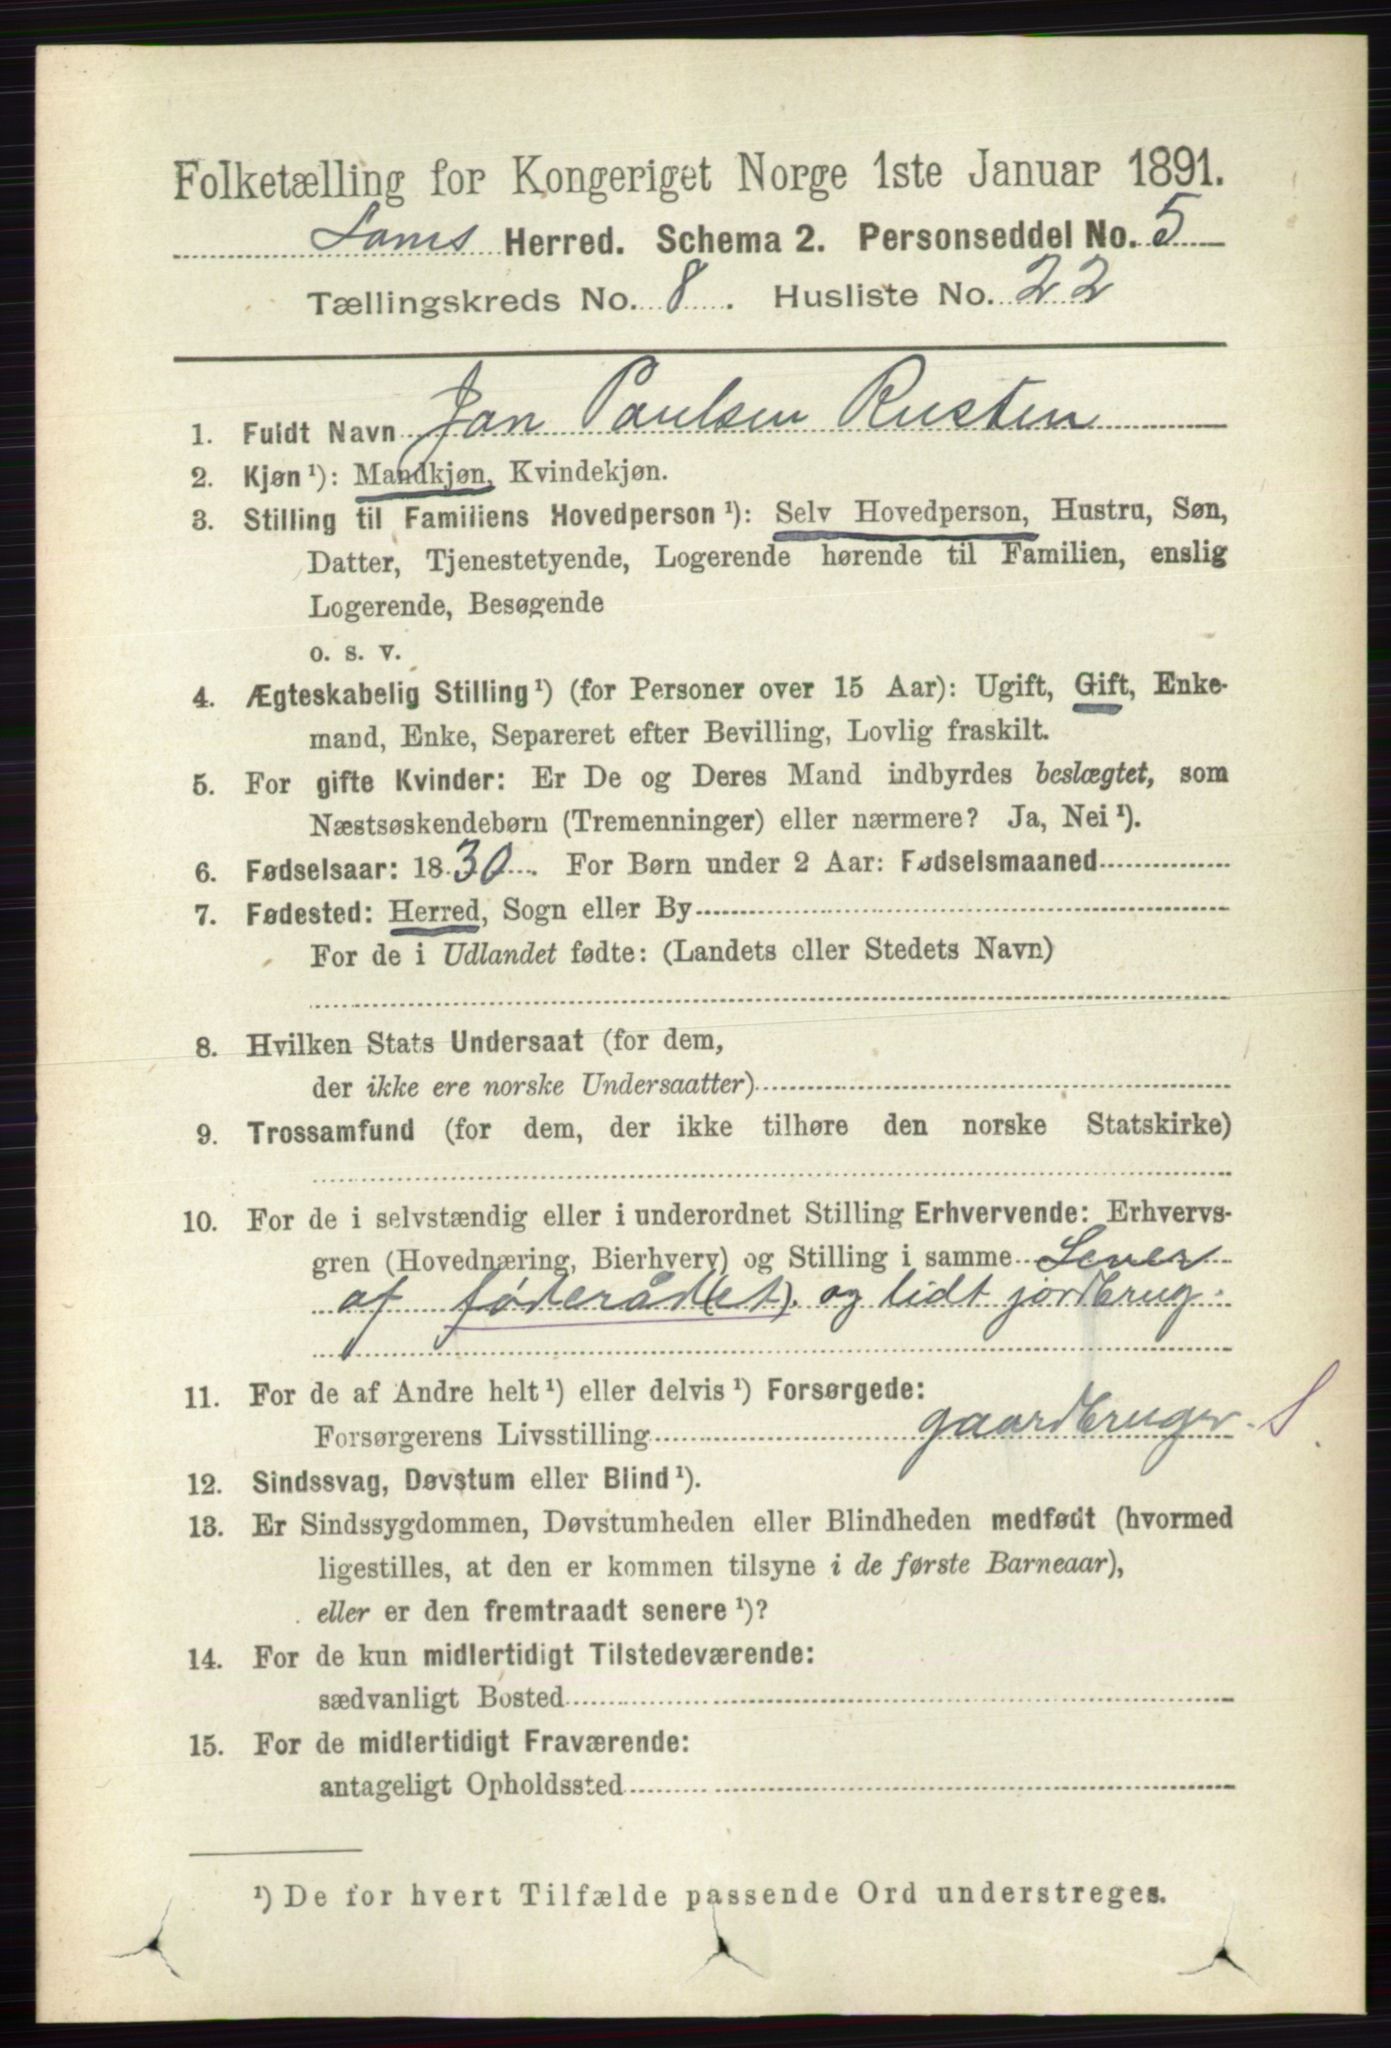 Folketælling for Kongeriget Norge 1ste Januar 1891.
Loms Herred. Schema 2. Personseddel No. 5
Tællingskreds No. 8. Husliste No. 22
1. Fuldt Navn Jon Paulsen Rusten
2. Kjøn ¹): Mandkjøn, Kvindekjøn.
3. Stilling til Familiens Hovedperson ¹): Selv Hovedperson, Hustru, Søn,
Datter, Tjenestetyende, Logerende hørende til Familien, enslig
Logerende, Besøgende
o. s. v.
4. Ægteskabelig Stilling ¹) (for Personer over 15 Aar): Ugift, Gift, Enke-
mand, Enke, Separeret efter Bevilling, Lovlig fraskilt.
5. For gifte Kvinder: Er De og Deres Mand indbyrdes beslægtet, som
Næstsøskendebørn (Tremenninger) eller nærmere? Ja, Nei ¹).
6. Fødselsaar: 1830. For Børn under 2 Aar: Fødselsmaaned
7. Fødested: Herred, Sogn eller By
For de i Udlandet fødte: (Landets eller Stedets Navn)
8. Hvilken Stats Undersaat (for dem,
der ikke ere norske Undersaatter)
9. Trossamfund (for dem, der ikke tilhøre den norske Statskirke)
10. For de i selvstændig eller i underordnet Stilling Erhvervende: Erhvervs-
gren (Hovednæring, Bierhverv) og Stilling i samme Lever
af föderåd(et). og lidt jordbrug.
11. For de af Andre helt ¹) eller delvis ¹) Forsørgede:
Forsørgerens Livsstilling gaardbruger. S
12. Sindssvag, Døvstum eller Blind ¹).
13. Er Sindssygdommen, Døvstumheden eller Blindheden medfødt (hvormed
ligestilles, at den er kommen tilsyne i de første Barneaar),
eller er den fremtraadt senere ¹)?
14. For de kun midlertidigt Tilstedeværende:
sædvanligt Bosted
15. For de midlertidigt Fraværende:
antageligt Opholdssted
¹) De for hvert Tilfælde passende Ord understreges.